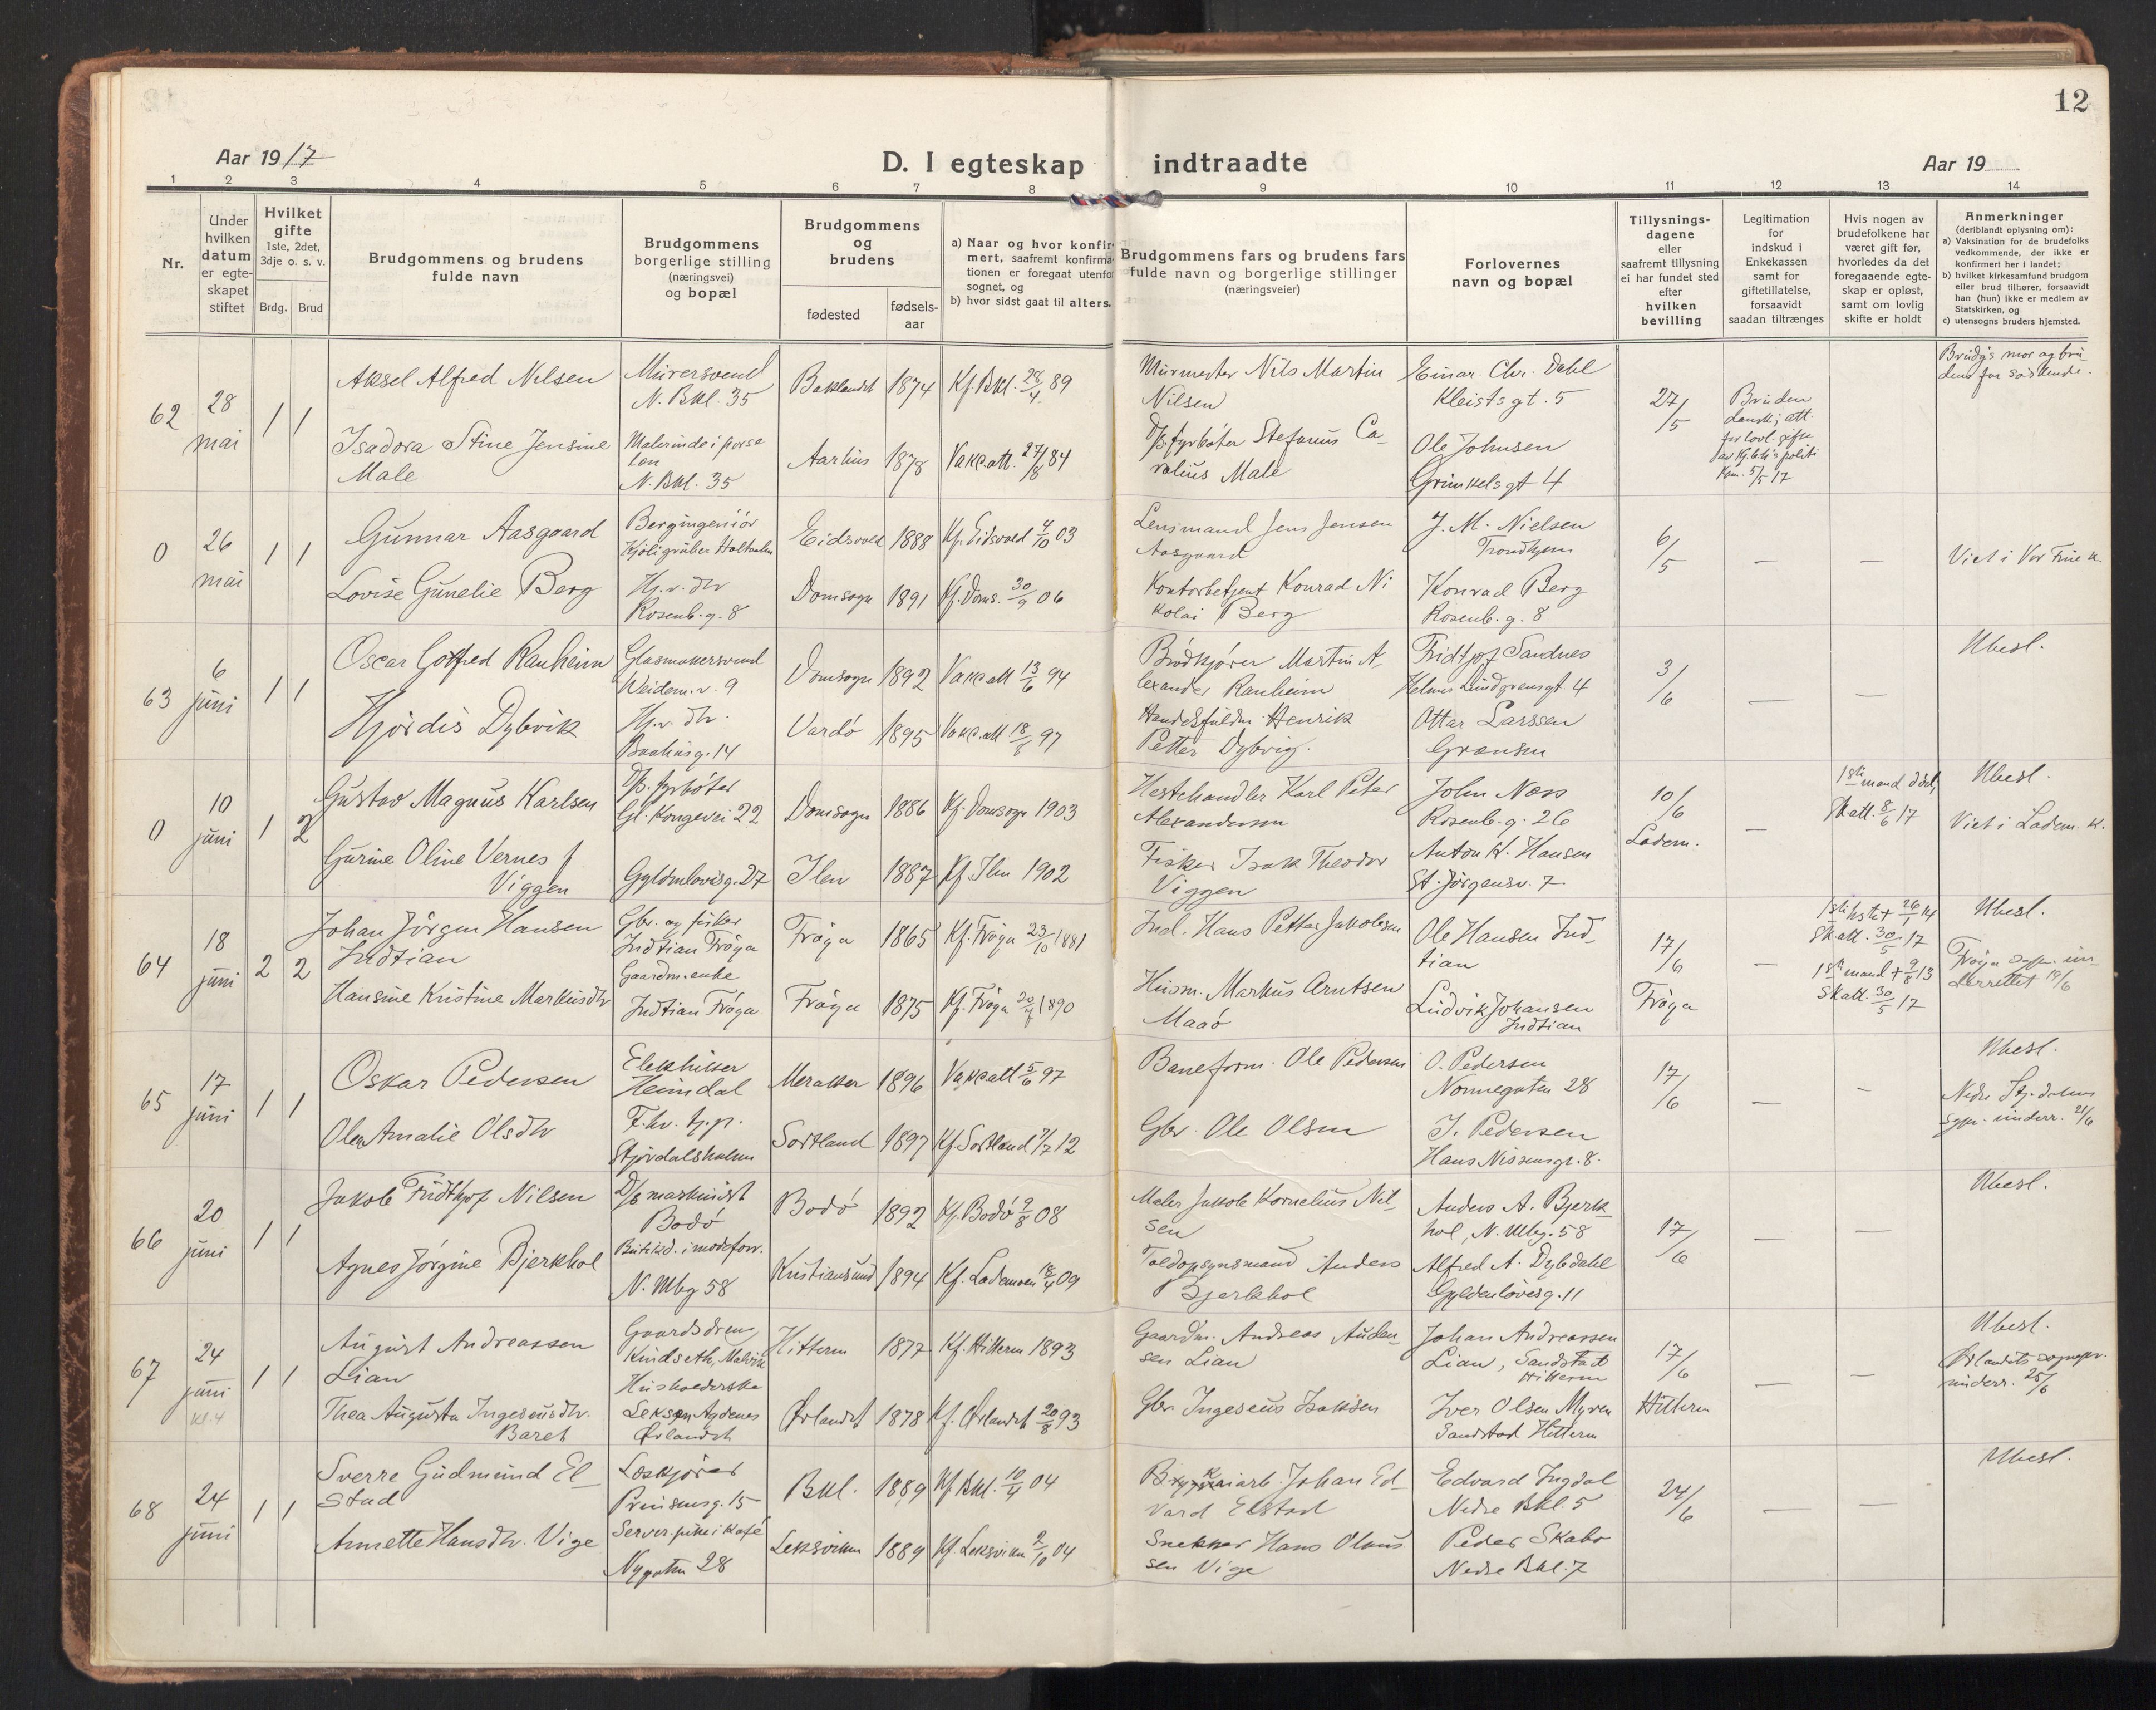 12
Aar 1917
D. I egteskap indtraadte
Aar 19
1 2 3 4 5 6 7 8 9 10 11 12 13 14
Nr.
Under hvilken datum er egte-skapet stiftet
Hvilket gifte
1ste, 2det, 3dje o. s. v.
Brdg. Brud
Brudgommens og brudens fulde navn
Brudgommens borgerlige stilling (næringsvei) og bopæl
Brudgommens og brudens
fødested
fødsels-aar
a) Naar og hvor konfir-mert, saafremt konfirma-tionen er foregaat utenfor sognet, og
b) hvor sidst gaat til alters.
Brudgommens fars og brudens fars fulde navn og borgerlige stillinger (næringsveier)
Forlovernes navn og bopæl
Tillysnings-dagene eller saafremt tillysning ei har fundet sted efter hvilken bevilling
Legitimation for indskud i Enkekassen samt for giftetillatelse, forsaavidt saadan tiltrænges
Hvis nogen av brudefolkene har været gift før, hvorledes da det foregaaende egte-skap er opløst, samt om lovlig skifte er holdt
Anmerkninger (deriblandt oplysning om):
a) Vaksination for de brudefolks vedkommende, der ikke er konfirmert her i landet;
b) hvilket kirkesamfund brudgom eller brud tilhører, forsaavidt han (hun) ikke er medlem av Statskirken, og
c) utensogns bruders hjemsted.
62 28 mai 1 1
Aksel Alfred Nilsen
Murersvend
N. Bkl. 35
Baklandet 1874 Kf. Bkl. 28/4 89
Murmester Nils Martin
Nilsen
Einar Chr. Dahl
Kleistsgt. 5
27/5
Bruden
dansk; att.
for lovl. gifte
av Kj.b.h's politi
Kam. 5/5 17
Brudg's mor og bru-
dens far søskende.
Isadora Stine Jensine
Male
Malerinde i porse
len
N. Bkl. 35
Aarhus 1878 Vakc.att. 27/8 84
D/s. fyrbøter Stefanus Ca-
rolius Male
Ole Johnsen
Grimkelsgt 4
0 26 mai 1 1
Gunnar Aasgaard
Bergingeniør
Kjøligruber Holtaalen
Eidsvold 1888 Kf. Eidsvold 4/10 03
Lensmand Jens Jensen
Aasgaard
J. M. Nielsen
Trondhjem
6/5 — —
Viet i Vor Frue k.
Lovise Gunelie Berg
Hj.v. dtr
Rosenb.g. 8
Domsogn 1891 Kf. Doms. 30/9 06
Kontorbetjent Konrad Ni
kolai Berg
Konrad Berg
Rosenb.g. 8
63 6 juni 1 1
Oscar Gotfred Ranheim
Glasmakersvend
Weidem.v. 9
Domsogn 1892 Vakc.att 13/6 94
Brødkjører Martin A-
lexander Ranheim
Fridtjof Sandnes
Helmer Lundgreensgt. 4
3/6 — —
Ubesl.
Hjørdis Dybvik
Hj.v. dtr.
Baahusg. 14
Vardø 1895 Vakc.att 18/8 97
Handelsfuldm. Henrik
Petter Dybvig.
Ottar Larssen
Grænsen
0 10 juni 1 2
Gustav Magnus Karlsen
D/s. fyrbøter
Gl. Kongevei 22
Domsogn 1886 Kf. Domsogn 1903
Hestehandler Karl Peter
Alexandersen
John Næss
Rosenb.g. 26
10/6
Ladem.
—
1ste mand död,
Sk att. 8/6 17
Ubesl.
Viet i Ladem. k.
Gurine Oline Vernes f
Viggen
Gyldenløvesg. 27
Ilen 1887 Kf. Ilen 1902
Fisker Isak Theodor
Viggen
Anton K. Hansen
St. Jørgensv. 7
64 18 juni 2 2
Johan Jörgen Hansen
Indtian
Gbr. og fisker
Indtian Frøya
Frøya 1865 Kf. Frøya 23/10 1881
Insl. Hans Petter Jakobsen
Ole Hansen Ind-
tian
17/6
Frøya
—
1ste hstr + 26/1 14
Sk att. 30/5 17
1ste mand + 9/8 13
Sk att. 30/5 17
Ubesl.
Frøya sogn. un-
derrettet 19/6
Hansine Kristine Markusdtr
Gaardm. enke
Indtian Frøya
Frøya 1875 Kf. Frøya 20/7 1890
Husm. Markus Arntsen
Maaö
Ludvik Johansen
Indtian
65 17 juni 1 1
Oskar Pedersen
Elektriker
Heimdal
Meraker 1896 Vakc att 5/6 97
Baneform. Ole Pedersen
O. Pedersen
Nonnegaten 28
17/6 — —
Ubesl.
Nedre Stj.dalens
sogn. underr. 21/6
Olea Amalie Olsdtr
F.hv. hj.p.
Stjørdalshalsen
Sortland 1897 Kf. Sortland 7/7 12
Gbr. Ole Olsen
I. Pedersen
Hans Nissensgt. 8.
66 20 juni 1 1
Jakob Fridthjof Nilsen
D/s maskinist
Bodø
Bodø 1892 Kf. Bodø 9/8 08
Maler Jakob Kornelius Nil-
sen
Anders A. Bjerk-
hol, N. Mbg. 58
17/6 — —
Ubesl.
Agnes Jørgine Bjerkhol
Butikd. i modeforr.
N. Mbg 58
Kristiansund 1894 Kf. Lademoen 18/4 09
Toldopsynsmand Anders
Bjerkhol
Alfred A. Dybdahl
Gyldenløvesg. 11
67 24 juni kl. 4 1 1
August Andreassen
Lian
Gaardsdreng
Kindseth, Malvik
Hitteren 1877 Kf. Hitteren 1893
Gaardm. Andreas Auden-
sen Lian
Johan Andreassen
Lian, Sandstad
Hitteren
17/6
Hitteren
— —
Ubesl.
Ørlandets sognepr.
underr. 25/6
Thea Augusta Ingeseusdtr.
Baret
Husholderske
Leksen Agdenes
Ørlandet
Ørlandet 1878 Kf. Ørlandet 20/8 93
Gbr. Ingeseus Isaksen
Iver Olsen Myren
Sandstad Hitteren
68 24 juni 1 1
Sverre Gudmund El-
stad
Læskjører
Prinsensg. 15
Bkl. 1889 Kf. Bkl. 10/4 04
Johan Ed-
vard Elstad
Edvard Ingdal
Nedre Bkl. 5
24/6 — —
Ubesl.
Annette Hansdtr. Vige
Server.pike i kafé
Nygaten 28
Leksviken 1889 Kf. Leksviken 2/10 04
Snekker Hans Olaus
sen Vige
Peder Skabo
Nedre Bkl. 7